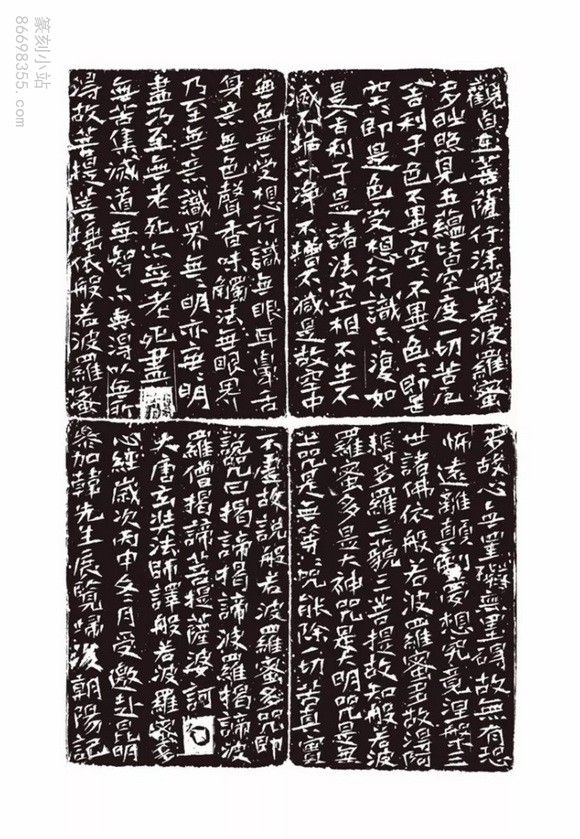 篆刻小站
86698355. com
觀自在菩薩行深般若波羅蜜
多時照見五蘊皆空度一切苦厄
舍利子色不異空〻不異色〻即是
空〻即是色受想行識亦復如
是舍利子是諸法空相不生不
滅不垢不淨不增不減是故空中
無色無受想行識無眼耳鼻舌
身意無色聲香味觸法無眼界
乃至無意識界無〻明亦無〻明
盡乃至無老死亦無老死盡
無苦集滅道無智亦無得以無所
得故菩提薩埵依般若波羅蜜
多故心無罣礙無罣碍故無有恐
怖遠離顛倒夢想究竟涅槃三
世諸佛依般若波羅蜜多故得阿
耨多羅三藐三菩提故知般若波
羅蜜多是大神咒是大明咒是無
上咒是無等〻咒能除一切苦真實
不虛故說般若波羅蜜多咒即
說咒曰揭諦揭諦波羅揭諦波
羅僧揭諦菩提薩婆訶
大唐玄奘法師譯般若波羅蜜多
心經歲次丙申冬月受邀赴昆明
參加韓先生展覽歸後朝陽記